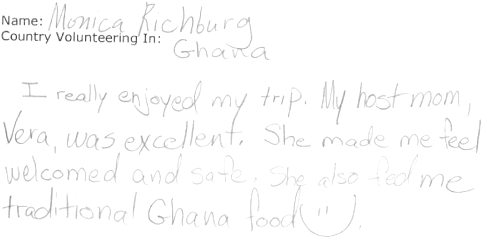 Name: Monica Richburg
Country Volunteering In:
Ghana
I really enjoyed my trip. My host mom,
Vera, was excellent. She made me feel
welcomed and safe. She also fed me
traditional Ghana food.